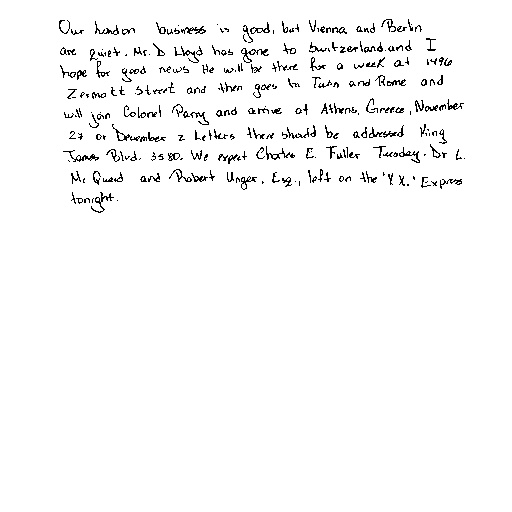 Our London business is good, but Vienna and Berlin
are quiet. Mr. D Lloyd has gone to Switzerland and I
hope for good news He will be there for a week at 1496
Zermott Street and then goes to Turin and Rome and
will join Colonel Parry and arrive at Athens, Greece, November
27 or December 2 Letters there should be addressed King
James Blvd. 3580. We expect Charles E. Fuller Tuesday. Dr L.
Mc Quaid and Robert Unger, Esq., left on the 'Y.X.' Express
tonight.